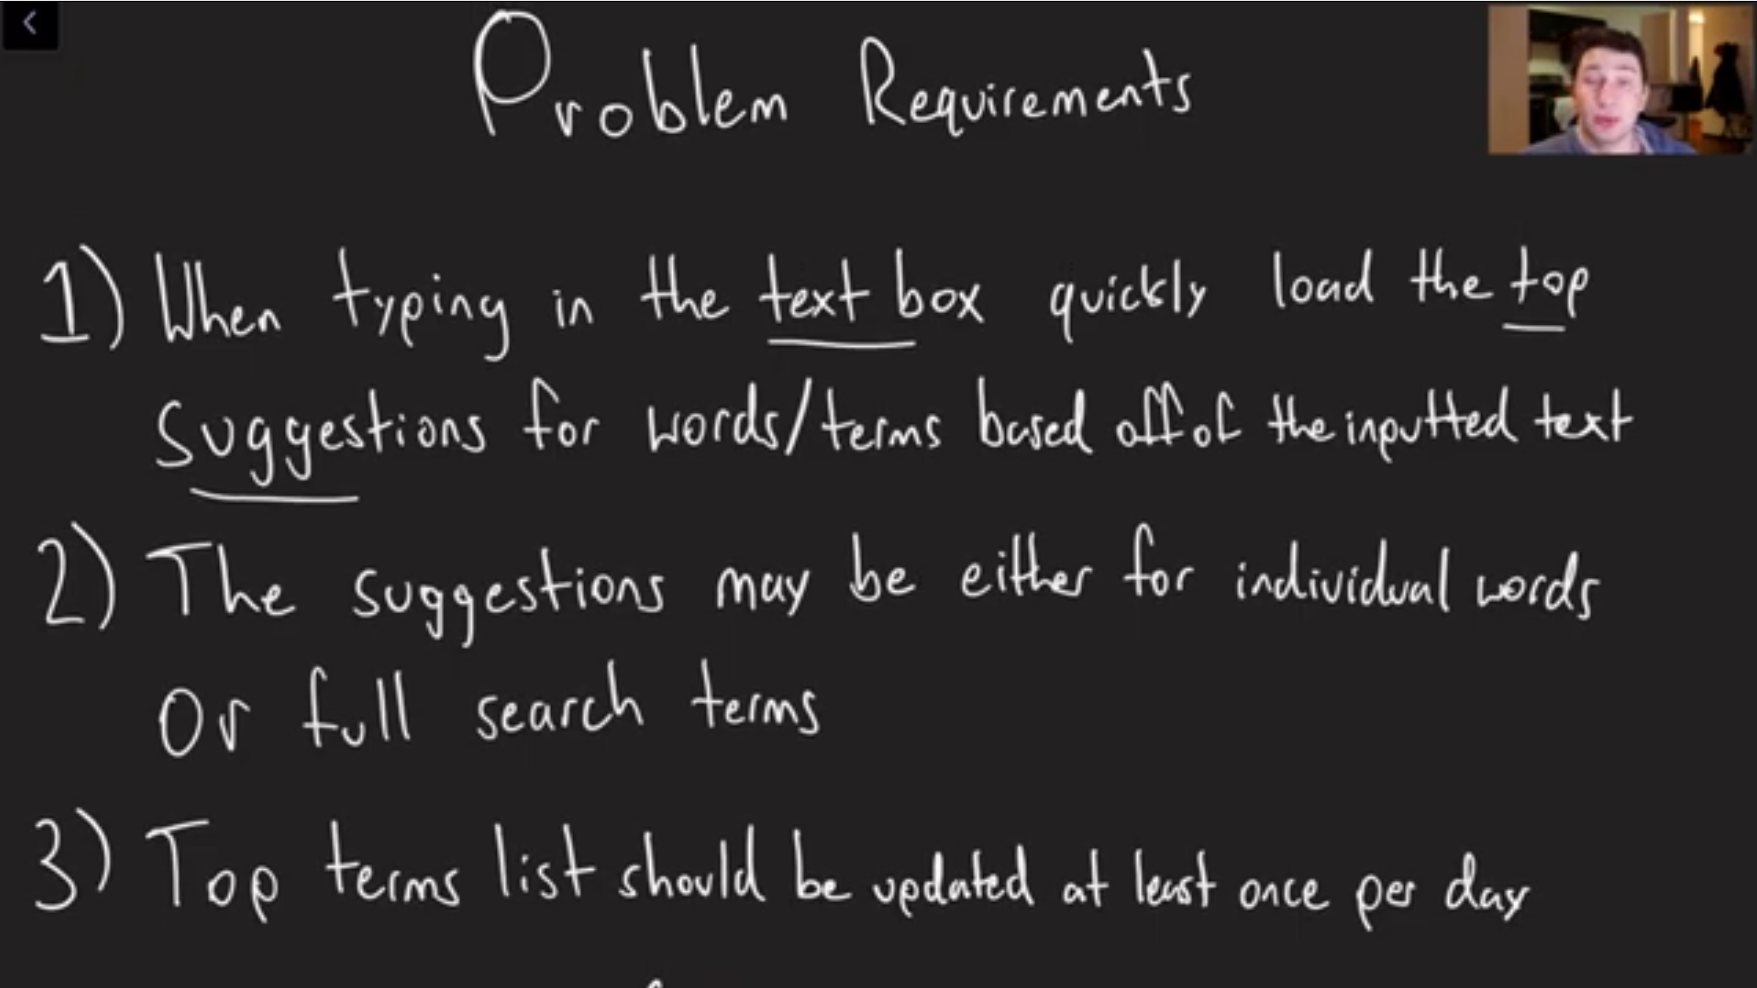 Problem Requirements
1) When typing in the text box quickly load the top
suggestions for words/terms based off of the inputted text
2) The suggestions may be either for individual words
or full search terms
3) Top terms list should be updated at least once per day